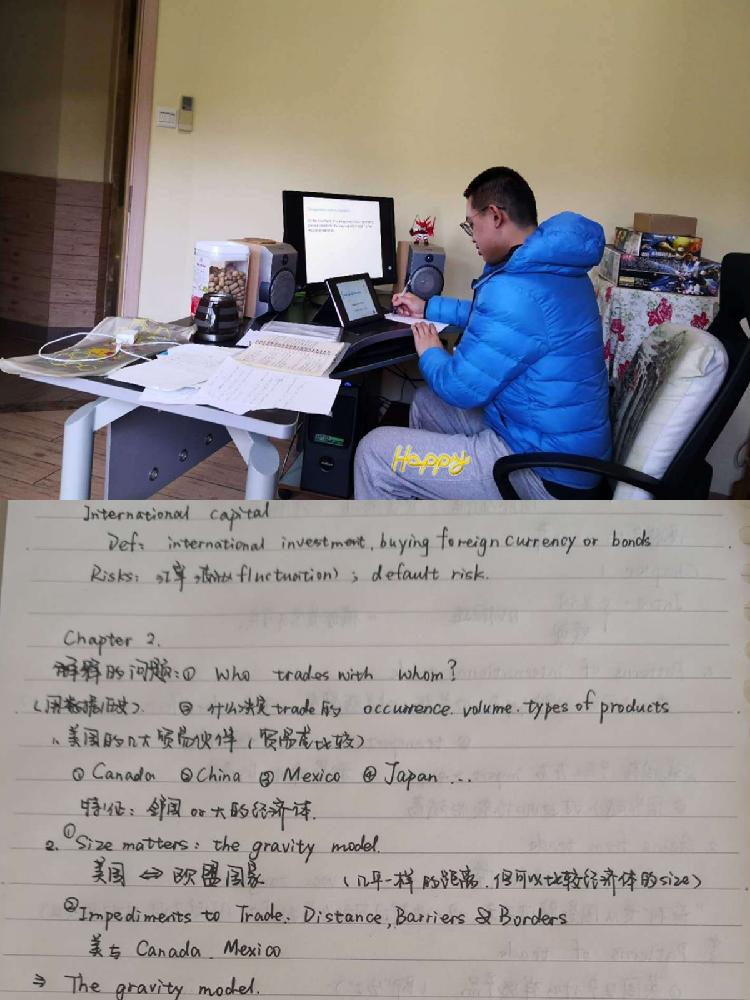 Happy
International capital
Def: international investment, buying foreign currency or bonds
Risks: 汇率 (fluctuation) ; default risk.
Chapter 2.
解释的问题: ① Who trades with whom?
(用数据历史) ② 什么决定 trade的 occurrence. volume. types of products
1. 美国的几大贸易伙伴 (贸易差比较)
① Canada ② China ③ Mexico ④ Japan ...
特征: 邻国 or 大的经济体.
2. ① Size matters: the gravity model.
美国 ⇔ 欧盟国家 (几乎一样的距离, 但可以比较经济体的size)
② Impediments to Trade: Distance, Barriers & Borders
美与 Canada. Mexico
⇒ The gravity model.